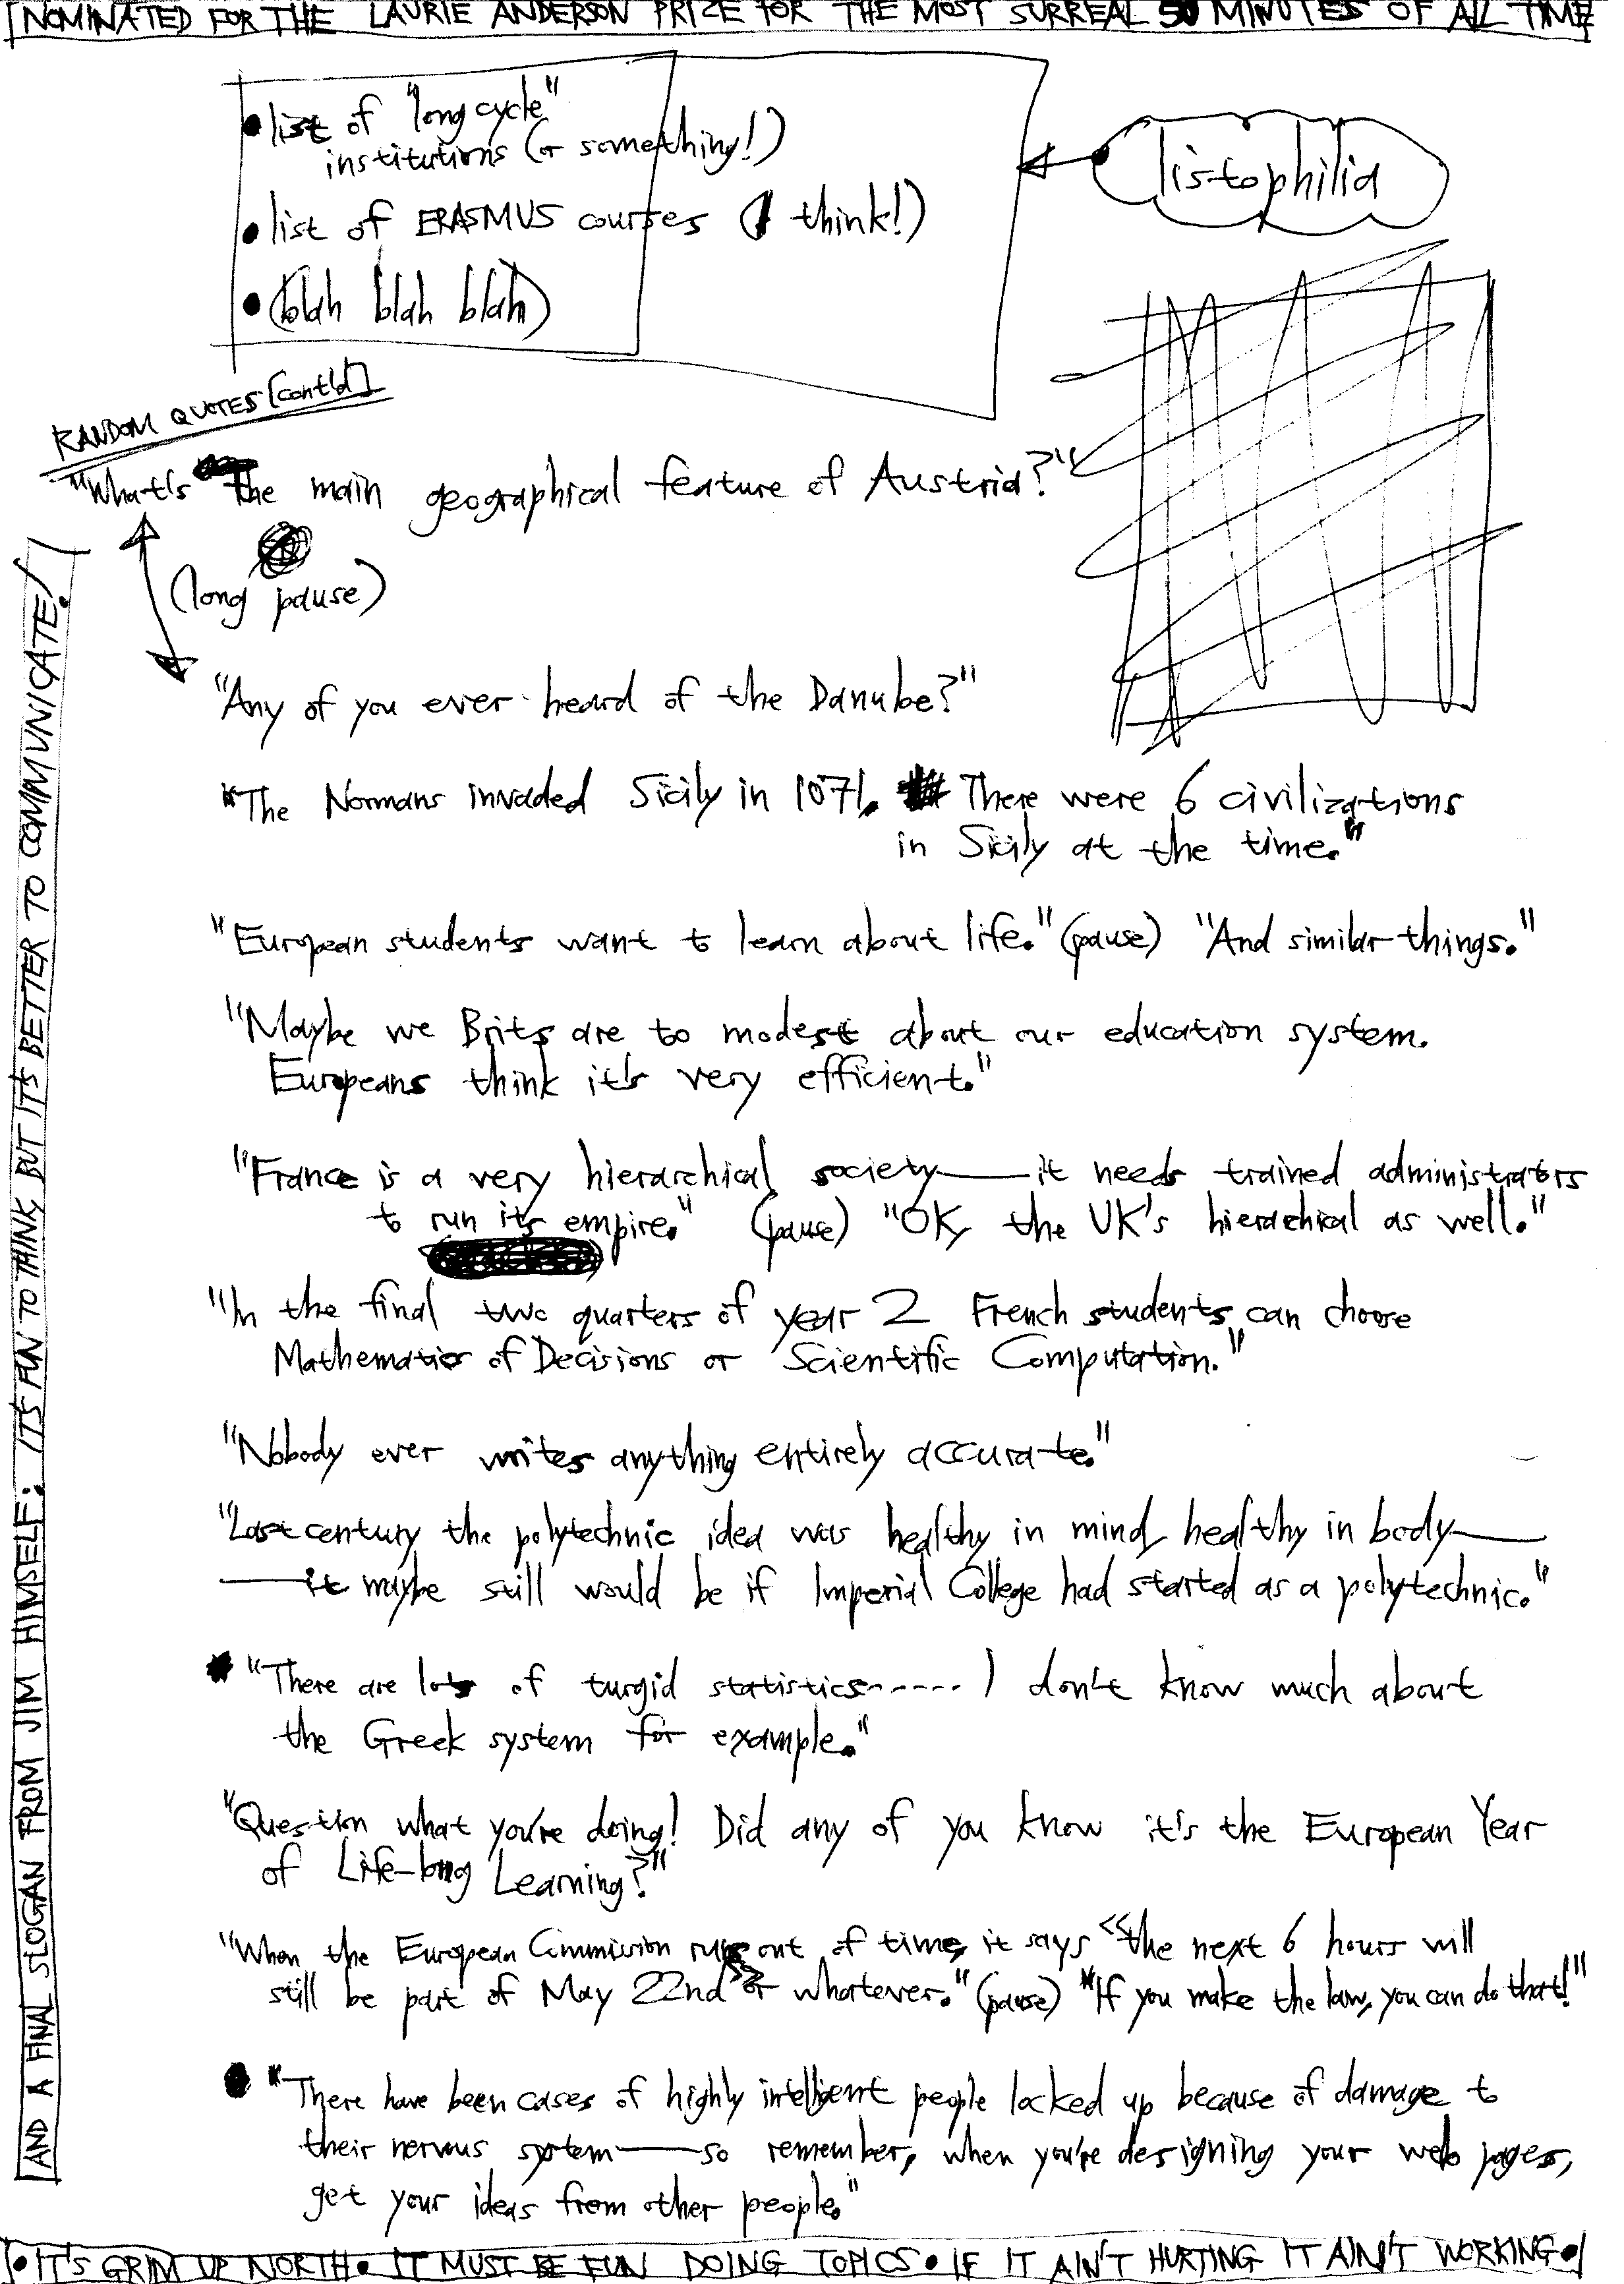 NOMINATED FOR THE LAURIE ANDERSON PRIZE FOR THE MOST SURREAL 50 MINUTES OF ALL TIME
• list of "long cycle"
institutions (or something!)
• list of ERASMUS courses (I think!)
• (blah blah blah)
listophilia
RANDOM QUOTES [cont'd]
"What's the main geographical feature of Austria?"
(long pause)
"Any of you ever heard of the Danube?"
"The Normans invaded Sicily in 1071. There were 6 civilizations
in Sicily at the time."
"European students want to learn about life." (pause) "And similar things."
"Maybe we Brits are to modest about our education system.
Europeans think it's very efficient."
"France is a very hierarchical society——it needs trained administrators
to run its empire." (pause) "OK, the UK's hierachical as well."
"In the final two quarters of year 2 French students can choose
Mathematics of Decisions or Scientific Computation."
"Nobody ever writes anything entirely accurate."
"Last century the polytechnic idea was healthy in mind, healthy in body——
——it maybe still would be if Imperial College had started as a polytechnic."
"There are lots of turgid statistics...... I don't know much about
the Greek system for example."
"Question what you're doing! Did any of you know it's the European Year
of Life-long Learning?"
"When the European Commission runs out of time, it says <<the next 6 hours will
still be part of May 22nd>> or whatever." (pause) "If you make the law, you can do that!"
• "There have been cases of highly intelligent people locked up because of damage to
their nervous system——so remember, when you're designing your web pages,
get your ideas from other people."
AND A FINAL SLOGAN FROM JIM HIMSELF: IT'S FUN TO THINK BUT IT'S BETTER TO COMMUNICATE!
• IT'S GRIM UP NORTH • IT MUST BE FUN DOING TOPICS • IF IT AIN'T HURTING IT AIN'T WORKING •